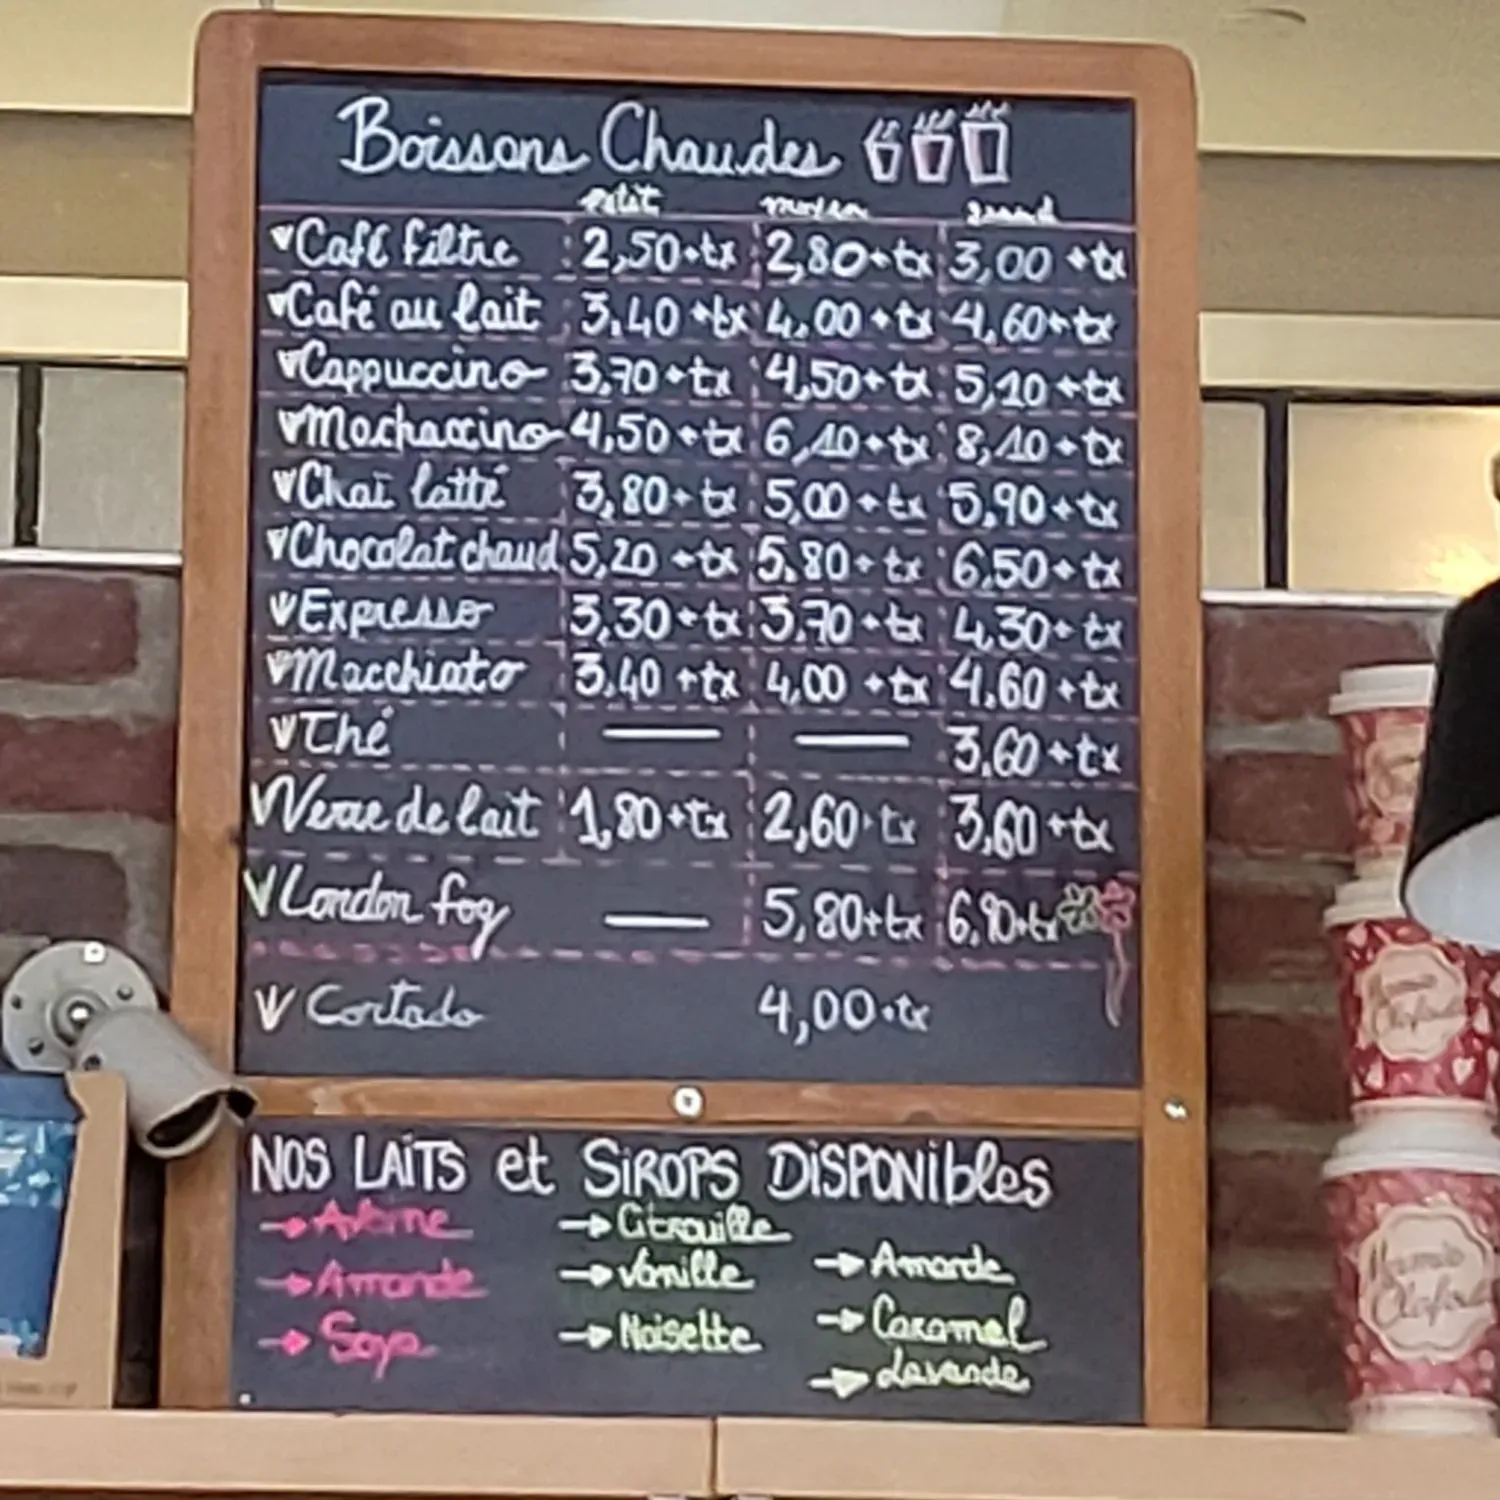 Boissons Chaudes
petit moyen grand
Café filtre 2,50+tx 2,80+tx 3,00 +tx
Café au lait 3,40 +tx 4,00 +tx 4,60+tx
Cappuccino 3,70+tx 4,50+tx 5,10+tx
Mochaccino 4,50+tx 6,10+tx 8,10+tx
Chaï latté 3,80+tx 5,00+tx 5,90+tx
Chocolat chaud 5,20 +tx 5,80+tx 6,50+tx
Expresso 3,30+tx 3,70+tx 4,30+tx
Macchiato 3,40 +tx 4,00 +tx 4,60+tx
Thé — — 3,60+tx
Verre de lait 1,80+tx 2,60+tx 3,60+tx
London fog — 5,80+tx 6,90+tx
Cortado 4,00+tx
NOS LAiTS et SiROPS DiSPONibles
→ Avoine → Citrouille
→ Amande → Vanille → Amande
→ Soya → Noisette → Caramel
→ Lavande